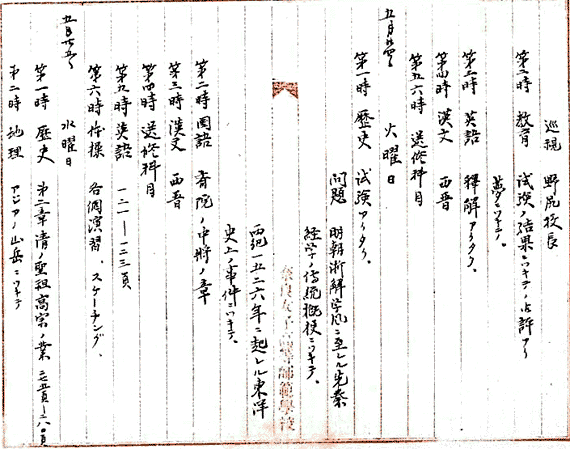 巡視 野尻校長
第二時 教育 試験ノ結果ニツキテノ批評アリ
夢ニツキテ。
第三時 英語 釋解アリタリ。
第四時 漢文 西晋
第五六時 選修科目
五月廿四日
火曜日
第一時 歴史 試験アリタリ。
問題 明朝 ニ至ル先秦
経学ノ傳統梗概ニツキテ、
西紀一五二六年ニ起レル東洋
史上ノ事件ニツキテ。
奈良女子高等師範學校
第二時 国語 斉院ノ中将ノ章
第三時 漢文 西晋
第四時 選修科目
第五時 英語 一二一ー一二三頁
第六時 体操 各個演習、スケーチング、
五月廿五日
水曜日
第一時 歴史 第二章清ノ聖祖高宗ノ業
第二時 地理 アジアノ山岳ニツキテ